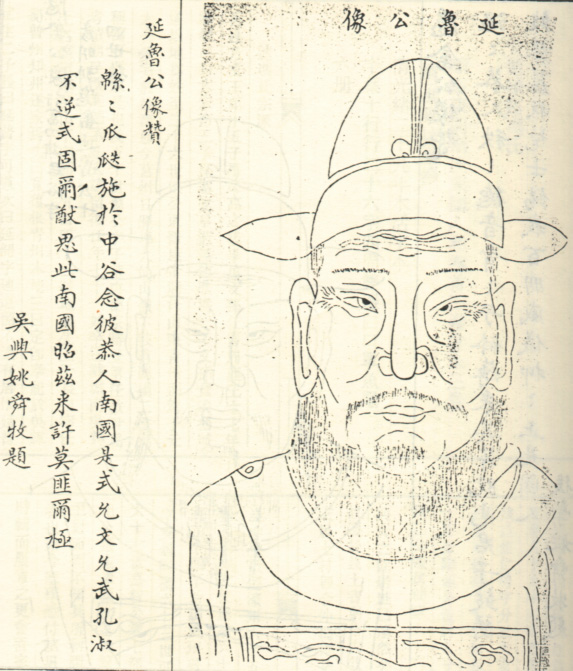 延魯公像
延魯公像贊
緜〻瓜瓞施於中谷念彼恭人南國是式允文允武孔淑
不逆式固爾猷思此南國昭茲来許莫匪爾極
吳興姚舜牧題